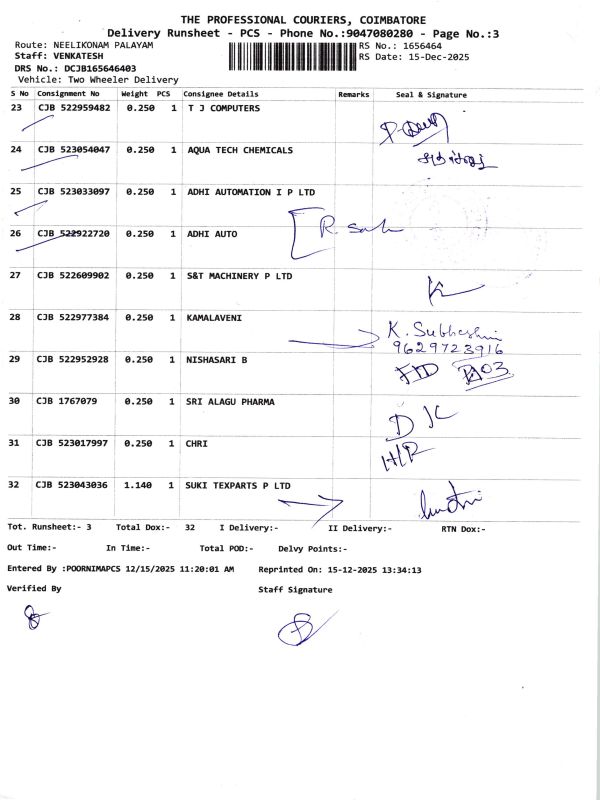 THE PROFESSIONAL COURIERS, COIMBATORE
Delivery Runsheet - PCS - Phone No.:9047080280 - Page No.:3
Route: NEELIKONAM PALAYAM RS No.: 1656464
Staff: VENKATESH RS Date: 15-Dec-2025
DRS No.: DCJB165646403
Vehicle: Two Wheeler Delivery
S No Consignment No Weight PCS Consignee Details Remarks Seal & Signature
23 CJB 522959482 0.250 1 T J COMPUTERS
24 CJB 523054047 0.250 1 AQUA TECH CHEMICALS
25 CJB 523033097 0.250 1 ADHI AUTOMATION I P LTD
26 CJB 522922720 0.250 1 ADHI AUTO
27 CJB 522609902 0.250 1 S&T MACHINERY P LTD
28 CJB 522977384 0.250 1 KAMALAVENI
K. Subhashini
9629723916
29 CJB 522952928 0.250 1 NISHASARI B
30 CJB 1767079 0.250 1 SRI ALAGU PHARMA
31 CJB 523017997 0.250 1 CHRI
32 CJB 523043036 1.140 1 SUKI TEXPARTS P LTD
Tot. Runsheet:- 3 Total Dox:- 32 I Delivery:- II Delivery:- RTN Dox:-
Out Time:- In Time:- Total POD:- Delvy Points:-
Entered By :POORNIMAPCS 12/15/2025 11:20:01 AM Reprinted On: 15-12-2025 13:34:13
Verified By Staff Signature